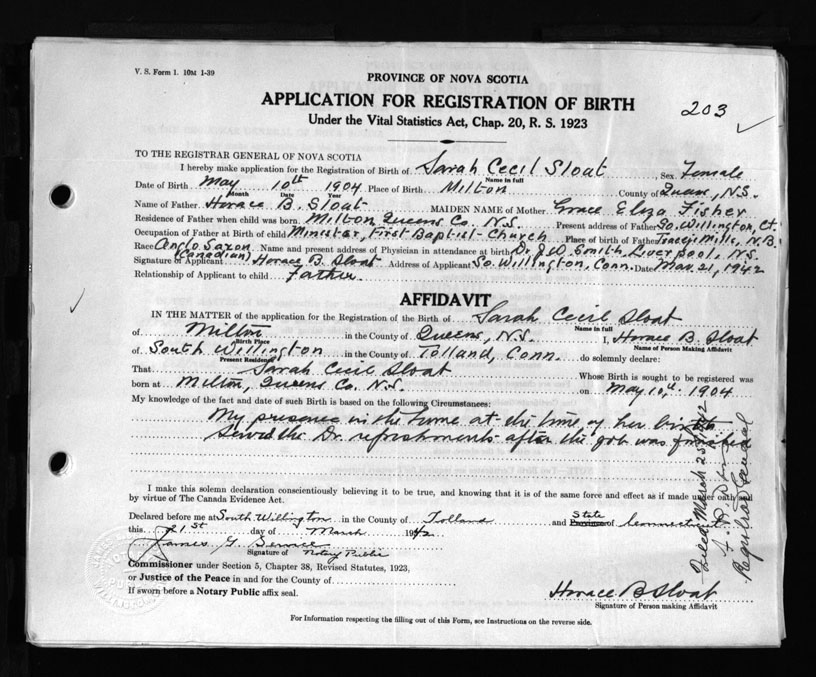 V. S. Form 1. 10M 1-39
PROVINCE OF NOVA SCOTIA
APPLICATION FOR REGISTRATION OF BIRTH
203
Under the Vital Statistics Act, Chap. 20, R. S. 1923
TO THE REGISTRAR GENERAL OF NOVA SCOTIA
I hereby make application for the Registration of Birth of Sarah Cecil Sloat, Sex Female
Name in full
Date of Birth May 10th 1904 Place of Birth Milton County of Queens, N.S.
Month Date Year
Name of Father Horace B. Sloat MAIDEN NAME of Mother Grace Eliza Fisher
Residence of Father when child was born Milton Queens Co. N.S. Present address of Father So. Willington, Ct.
Occupation of Father at Birth of child Minister, First Baptist-Church Place of birth of Father Tracey Mills, N.B.
Race Anglo Saxon Name and present address of Physician in attendance at birth Dr. J.W. Smith, Liverpool, N.S.
(Canadian)
Signature of Applicant Horace B. Sloat Address of Applicant So. Willington, Conn. Date Mar. 21, 1942
Relationship of Applicant to child Father
AFFIDAVIT
IN THE MATTER of the application for the Registration of the Birth of Sarah Cecil Sloat
Name in full
of Milton in the County of Queens, N.S. I, Horace B. Sloat
Birth Place Name of Person Making Affidavit
of South Willington in the County of Tolland, Conn. do solemnly declare:
Present Residence
That Sarah Cecil Sloat Whose Birth is sought to be registered was
born at Milton, Queens Co. N.S. on May 10, 1904
My knowledge of the fact and date of such Birth is based on the following Circumstances:
My presence in the home at the time of her birth
Served the Dr. refreshments after the job was finished
I make this solemn declaration conscientiously believing it to be true, and knowing that it is of the same force and effect as if made under oath
by virtue of The Canada Evidence Act.
Declared before me at South Willington in the County of Tolland and State Province of Connecticut
this 21st day of March 1942
James G.
Signature of Notary Public
Commissioner under Section 5, Chapter 38, Revised Statutes, 1923,
or Justice of the Peace in and for the County of
If sworn before a Notary Public affix seal.
Horace B Sloat
Signature of Person making Affidavit
For Information respecting the filling out of this Form, see Instructions on the reverse side.
Filed March 25 1942
Registrar General